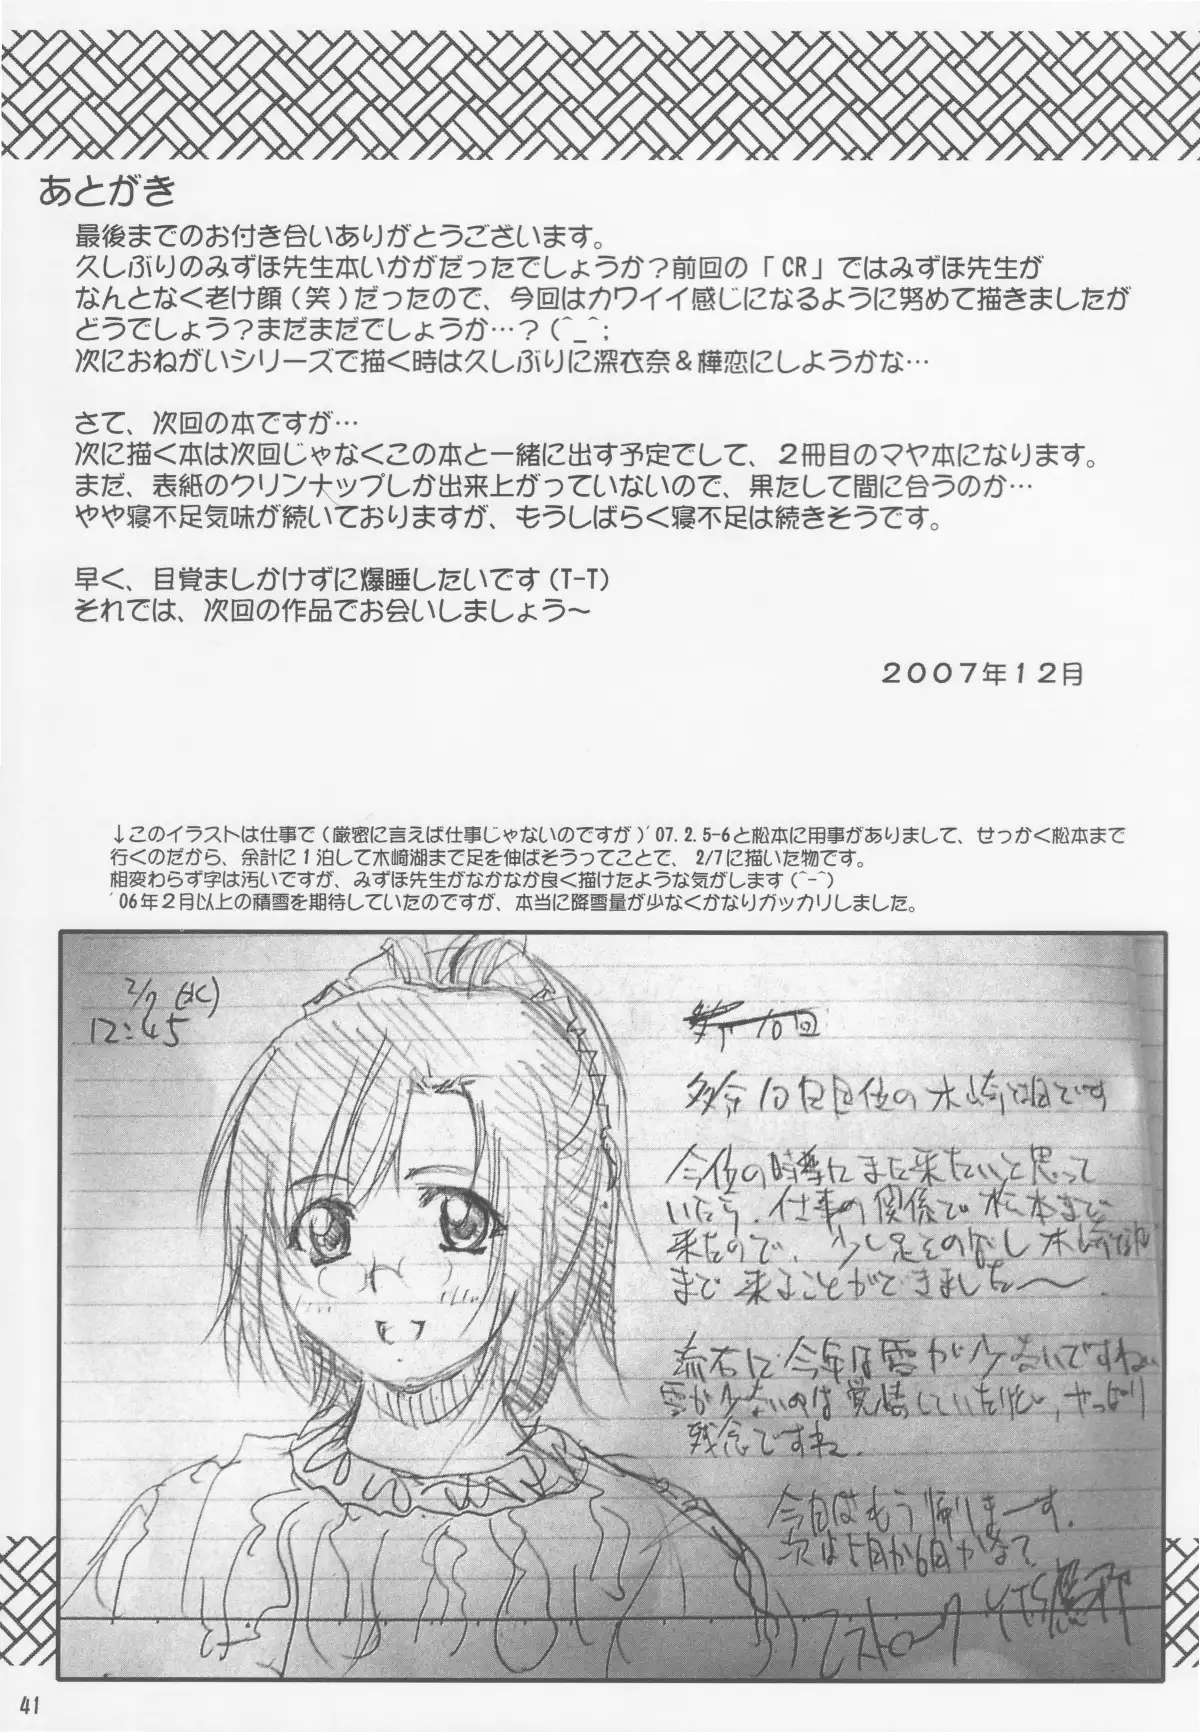 あとがき
最後までのお付き合いありがとうございます。
久しぶりのみずほ先生本いかがだったでしょうか?前回の「CR」ではみずほ先生が
なんとなく老け顔(笑)だったので、今回はカワイイ感じになるように努めて描きましたが
どうでしょう?まだまだでしょうか…?(^_^;
次におねがいシリーズで描く時は久しぶりに深衣奈&樺恋にしようかな…
さて、次回の本ですが…
次に描く本は次回じゃなくこの本と一緒に出す予定でして、2冊目のマヤ本になります。
まだ、表紙のクリンナップしか出来上がっていないので、果たして間に合うのか…
やや寝不足気味が続いておりますが、もうしばらく寝不足は続きそうです。
早く、目覚ましかけずに爆睡したいです(T-T)
それでは、次回の作品でお会いしましょう~
2007年12月
↓このイラストは仕事で(厳密に言えば仕事じゃないのですが)'07.2.5-6と松本に用事がありまして、せっかく松本まで
行くのだから、余計に1泊して木崎湖まで足を伸ばそうってことで、2/7に描いた物です。
相変わらず字は汚いですが、みずほ先生がなかなか良く描けたような気がします(^-^)
'06年2月以上の積雪を期待していたのですが、本当に降雪量が少なくかなりガッカリしました。
2/7(水)
12:45
10回
多分10回目位の木崎湖です
今位の時季にまた来たいと思って
いたら、仕事の関係で松本まで
来たので、少し足をのばし木崎湖
まで来ることができました〜.
流石に今年は雪が少ないですね
雪が少ないのは覚悟していたけど,やっぱり
残念ですね.
今日はもう帰りまーす.
次は5月か6月かなって
41